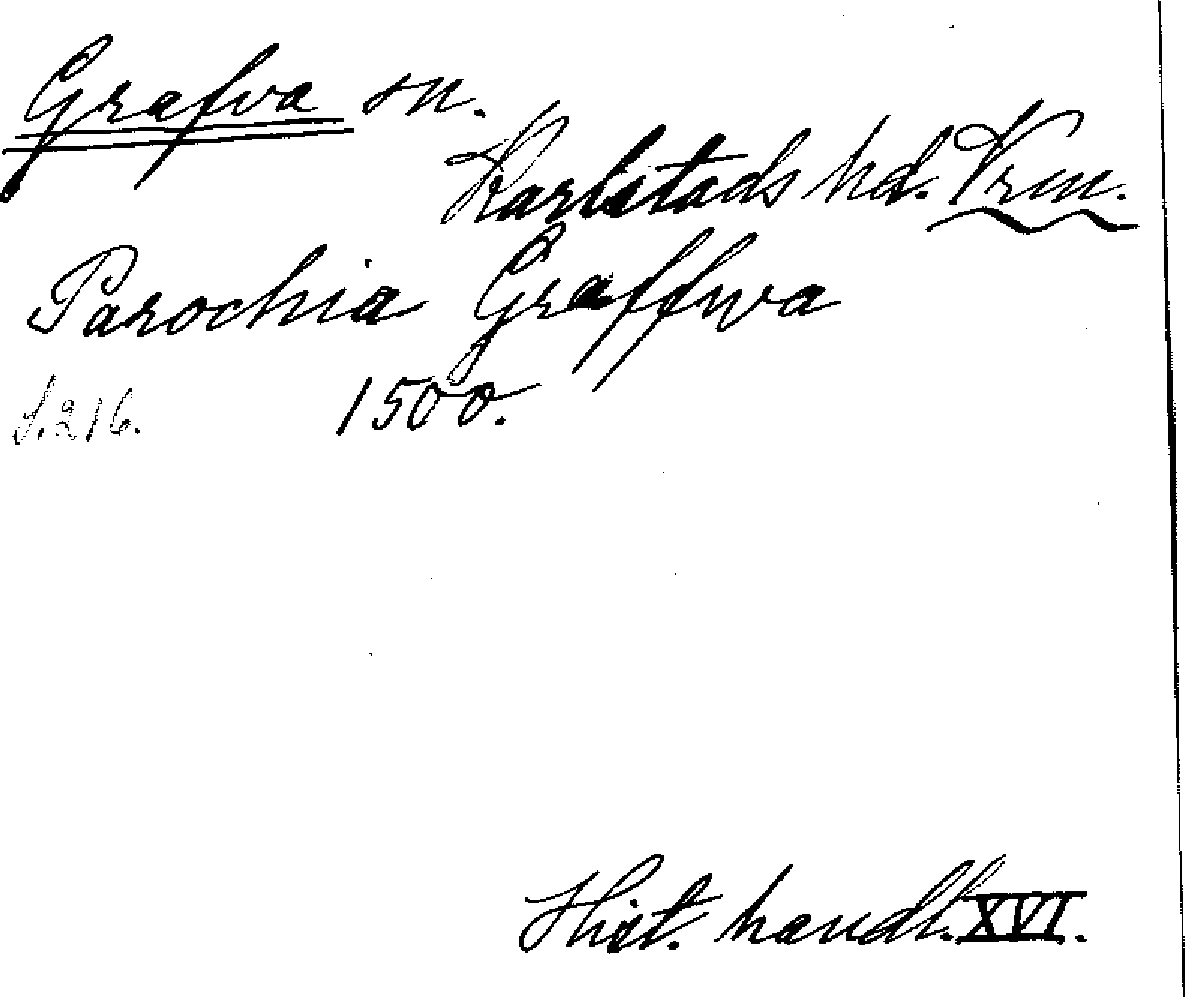 Grafva sn.
Karlstads hd. Vrm.
Parochia Graffwa
S. 216. 1500.
Hist. handl. XVI.